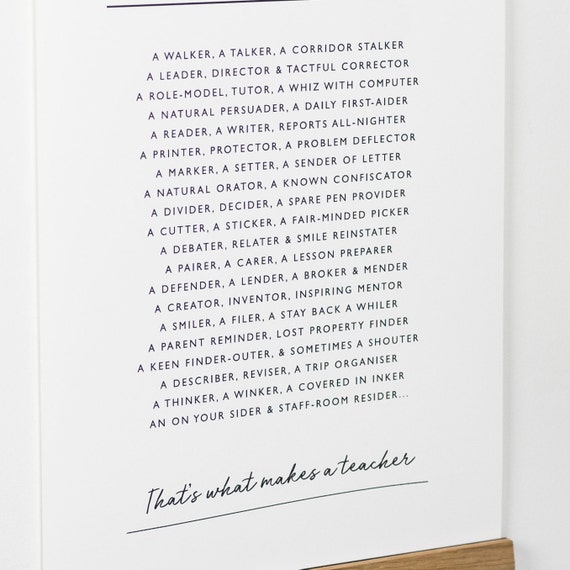 A WALKER, A TALKER, A CORRIDOR STALKER
A LEADER, DIRECTOR & TACTFUL CORRECTOR
A ROLE-MODEL, TUTOR, A WHIZ WITH COMPUTER
A NATURAL PERSUADER, A DAILY FIRST-AIDER
A READER, A WRITER, REPORTS ALL-NIGHTER
A PRINTER, PROTECTOR, A PROBLEM DEFLECTOR
A MARKER, A SETTER, A SENDER OF LETTER
A NATURAL ORATOR, A KNOWN CONFISCATOR
A DIVIDER, DECIDER, A SPARE PEN PROVIDER
A CUTTER, A STICKER, A FAIR-MINDED PICKER
A DEBATER, RELATER & SMILE REINSTATER
A PAIRER, A CARER, A LESSON PREPARER
A DEFENDER, A LENDER, A BROKER & MENDER
A CREATOR, INVENTOR, INSPIRING MENTOR
A SMILER, A FILER, A STAY BACK A WHILER
A PARENT REMINDER, LOST PROPERTY FINDER
A KEEN FINDER-OUTER, & SOMETIMES A SHOUTER
A DESCRIBER, REVISER, A TRIP ORGANISER
A THINKER, A WINKER, A COVERED IN INKER
AN ON YOUR SIDER & STAFF-ROOM RESIDER...
That's what makes a teacher